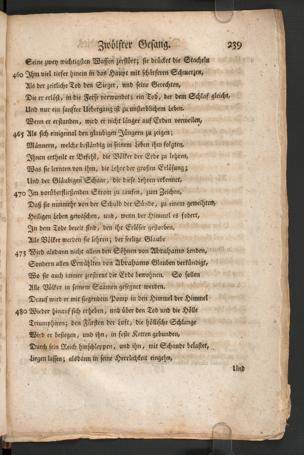 Zwölfter Gesang. 239
Seine zwey wichtigsten Waffen zerstört; sie drücket die Stacheln
460 Ihm viel tiefer hinein in das Haupt mit schärferen Schmerzen,
Als der zeitliche Tod den Sieger, und seine Gerechten,
Die er erlöst, in die Ferse verwundet; ein Tod, der dem Schlaf gleicht,
Und nur ein sanfter Uebergang ist zu unsterblichem Leben.
Wenn er erstanden, wird er nicht länger auf Erden verweilen,
465 Als sich einigemal den glaubigen Jüngern zu zeigen;
Männern, welche beständig in seinem Leben ihm folgten.
Ihnen ertheilt er Befehl, die Völker der Erde zu lehren,
Was sie lernten von ihm, die Lehre der großen Erlösung;
Und der Gläubigen Schaar, die diese Lehren erkennet,
470 Im vorüberfliessenden Strom zu taufen, zum Zeichen,
Daß sie nunmehr von der Schuld der Sünde, zu einem geweihten,
Heiligen Leben gewaschen, und, wenn der Himmel es fodert,
In dem Tode bereit sind, den ihr Erlöser gestorben.
Alle Völker werden sie lehren; der selige Glaube
475 Wird alsdann nicht allein den Söhnen von Abrahams Lenden,
Sondern allen Erwählten von Abrahams Glauben verkündigt,
Wo sie auch immer zerstreut die Erde bewohnen. So sollen
Alle Völker in seinem Saamen gesegnet werden.
Drauf wird er mit siegendem Pomp in den Himmel der Himmel
480 Wieder hinauf sich erheben, und über den Tod und die Hölle
Triumphiren; den Fürsten der Luft, die höllische Schlange
Wird er besiegen, und ihn, in feste Ketten gebunden,
Durch sein Reich hinschleppen, und ihn, mit Schande belastet,
Liegen lassen; alsdann in seine Herrlichkeit eingehn,
Und